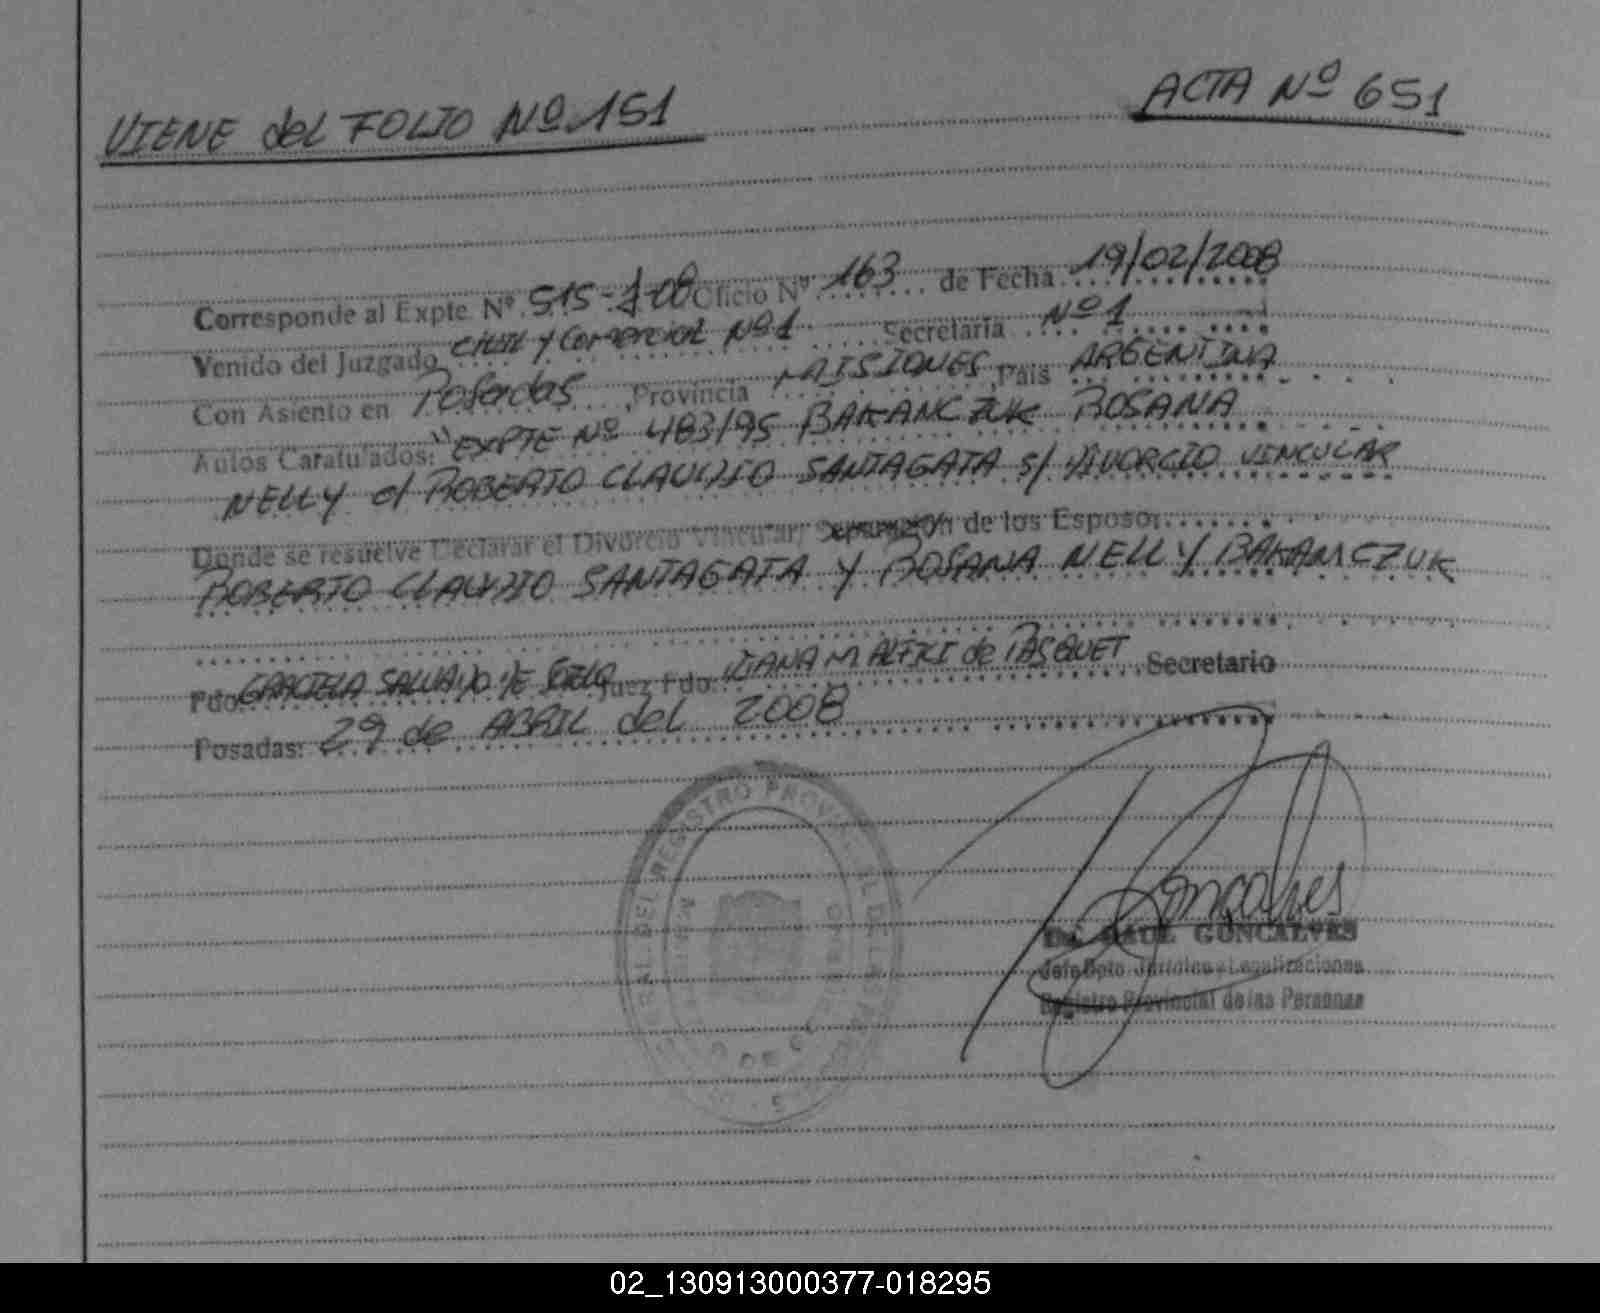 VIENE del FOLIO Nº 151
ACTA Nº 651
Corresponde al Expte. Nº 515-J-08 Oficio Nº 163 de Fecha 19/02/2008
Venido del Juzgado Civil y Comercial Nº 1 Secretaria Nº 1
Con Asiento en Posadas, Provincia MISIONES, Pais ARGENTINA
Autos Caratulados: "EXPTE Nº 483/95 BAKANCZUK ROSANA
NELLY c/ ROBERTO CLAUDIO SANTAGATA s/ DIVORCIO VINCULAR
Donde se resuelve Declarar el Divorcio Vincular/ Separación de los Esposos
ROBERTO CLAUDIO SANTAGATA y ROSANA NELLY BAKANCZUK
Fdo. GRACIELA DE Juez Fdo. DIANA MALFICI de PASQUET Secretario
Posadas: 29 de ABRIL del 2008
REGISTRO PROVINCIAL DE LAS PERSONAS
Goncalves
Dr. RAUL GONCALVES
Jefe Dpto. Jurídico y Legalizaciones
Registro Provincial de las Personas
02_130913000377-018295